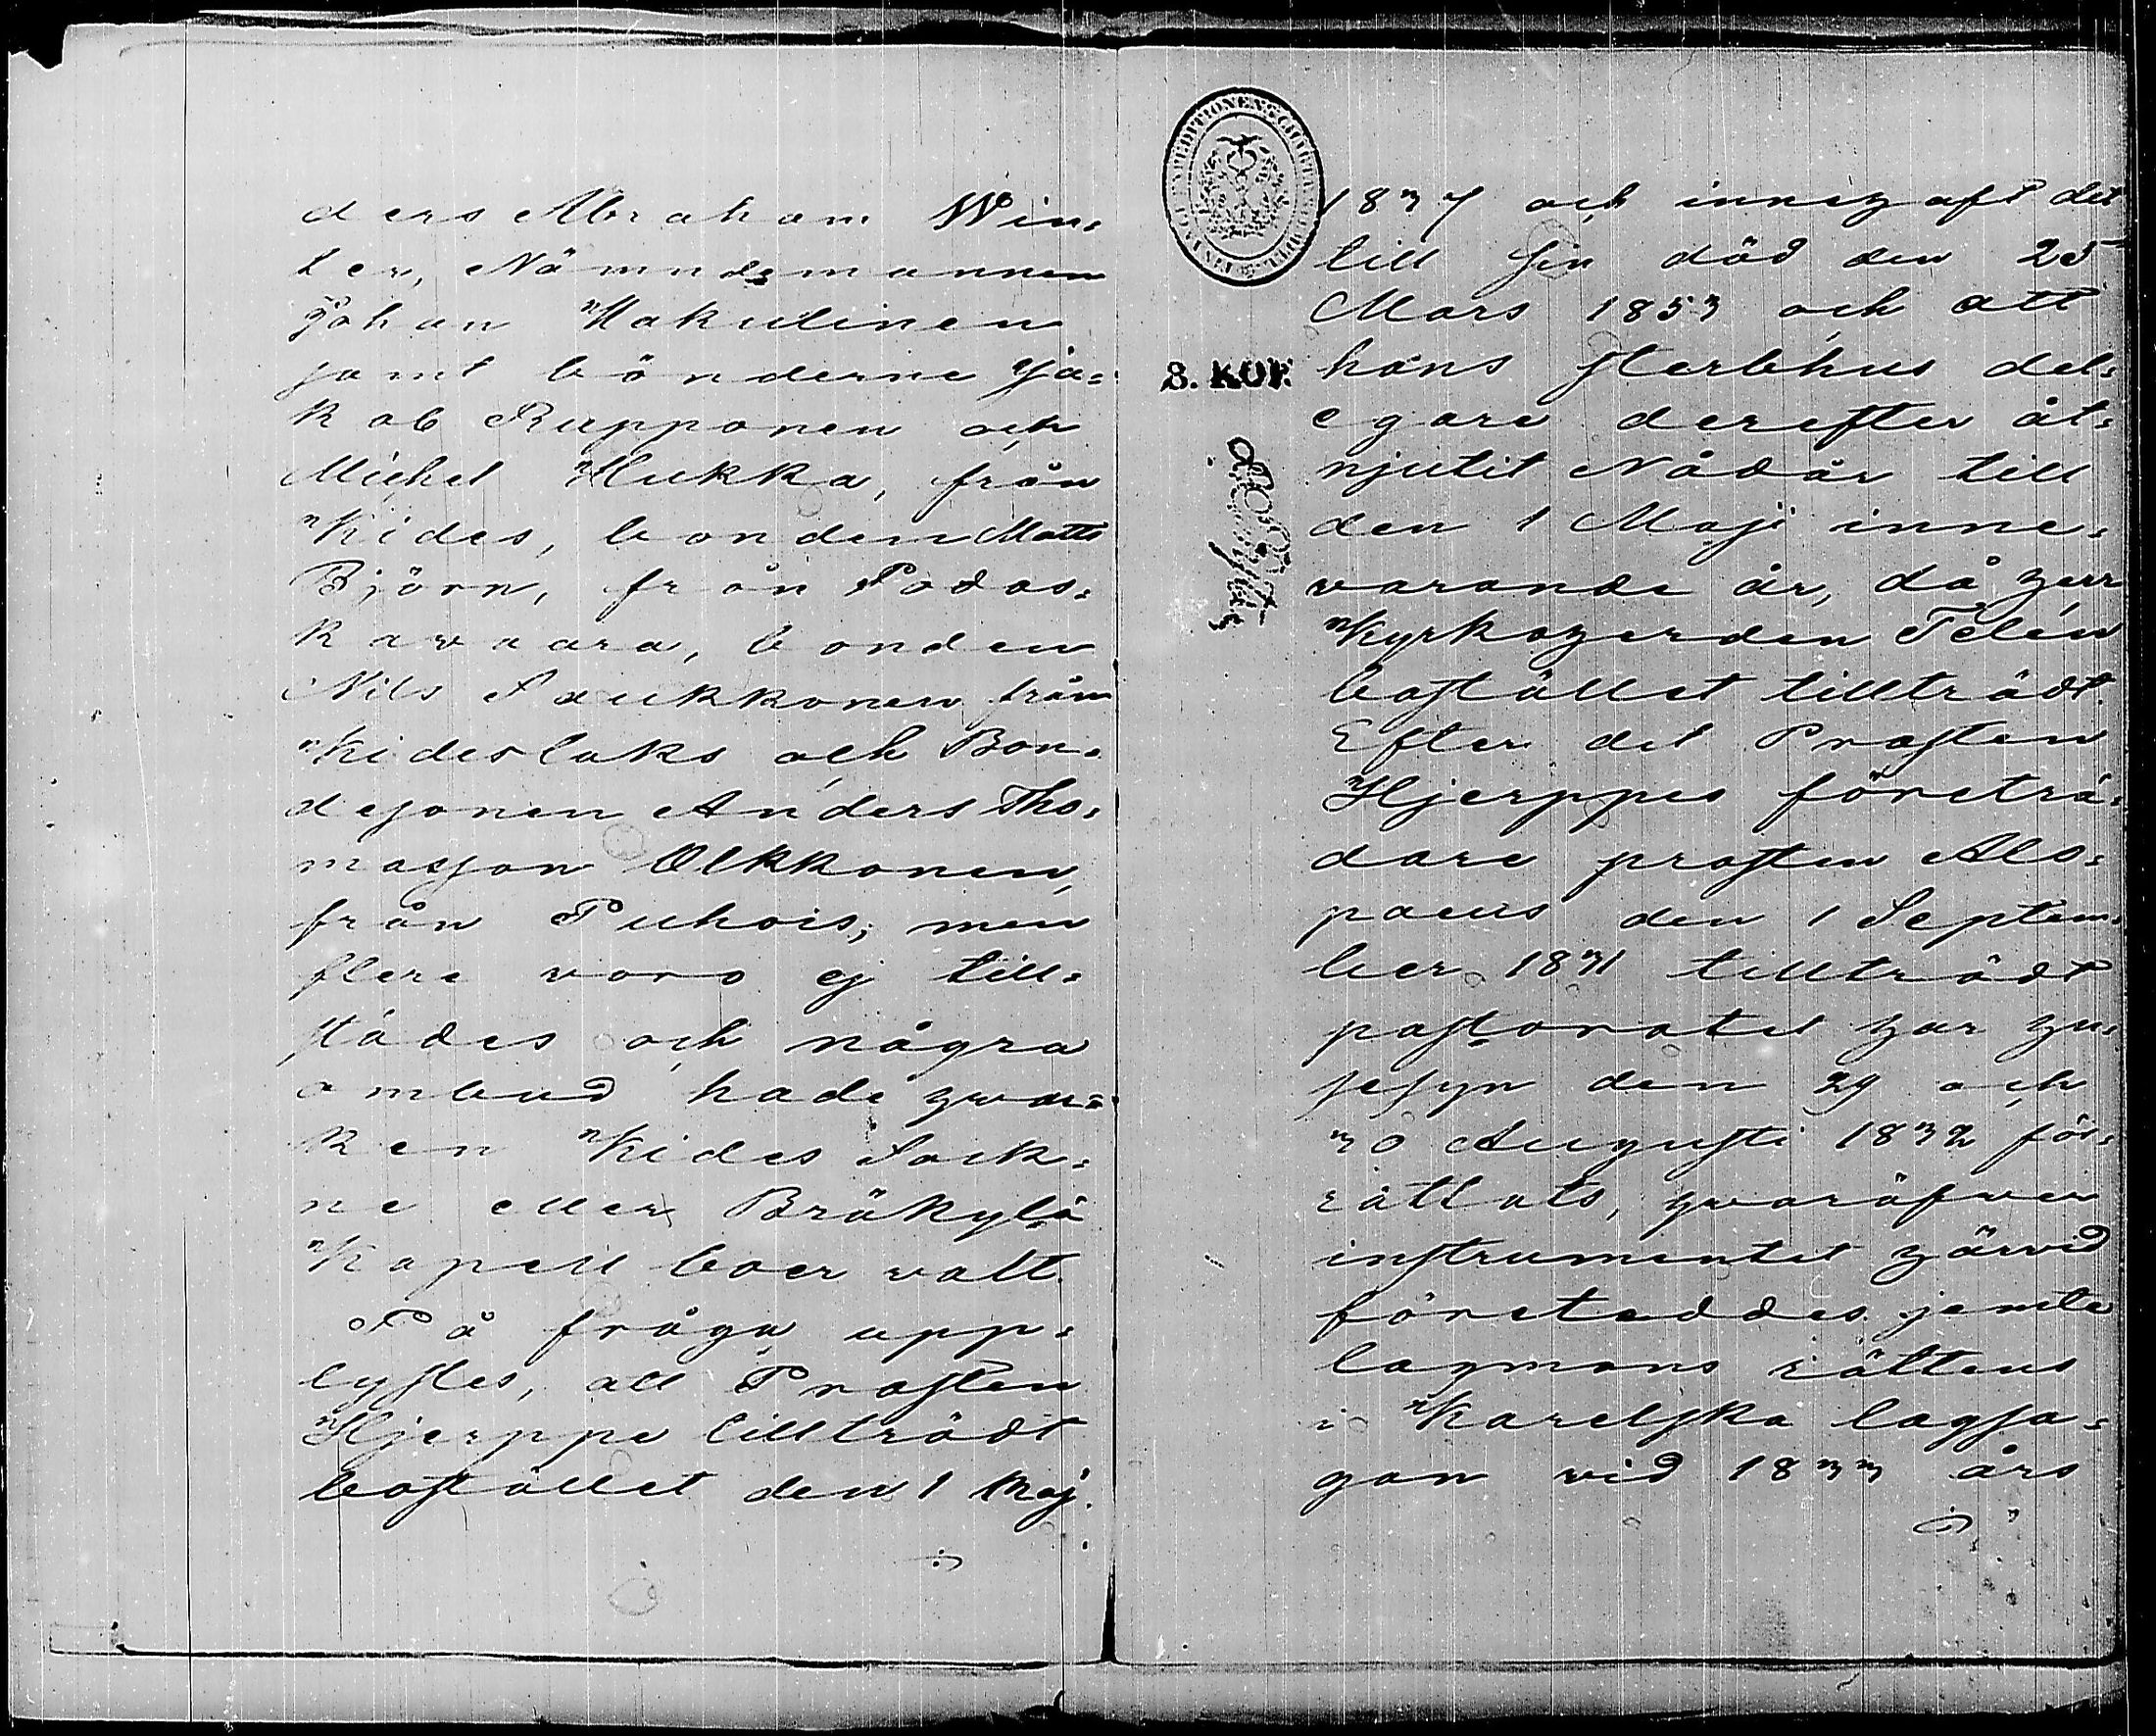 ders Abraham Win=
ter, Nämndemannen
Johan Hakulinen
samt bönderne Ja=
kob Rupponen och
Michel Hukka, från
Kides, bonden Matts
Björn, från Podos=
kavaara, bonden
Nils Laukkonen från
Kideslaks och Bon=
desonen Anders Tho=
masson Olkkonen,
från Puhois; men
flere voro ej till=
städes och några
ombud hade hvar=
ken Kides Sock=
ne eller Bräkylä
Kapell boer valt.
På fråga upp=
lystes, att Prosten
Hjerppe tillträdt
bostället den 1 Maj
1837 och innehaft det
till sin död den 25
Mars 1853 och att
hans sterbhus del=
egare derefter åt=
njutit Nådår till
den 1 Maji inne=
varande år, då herr
Kyrkoherden Telén
bostället tillträdt.
Efter det Prosten
Hjerppes företrä=
dare prosten Alo=
paeus den 1 Septem=
ber 1831 tillträdt
pastoratet har hu=
sesyn den 29 och
30 Augusti 1832 för=
rättats, hvaröfver
instrumentet härvid
företeddes jemte
lagmans rättens
i Karelska lagsa=
gan vid 1833 års
8. KOP.